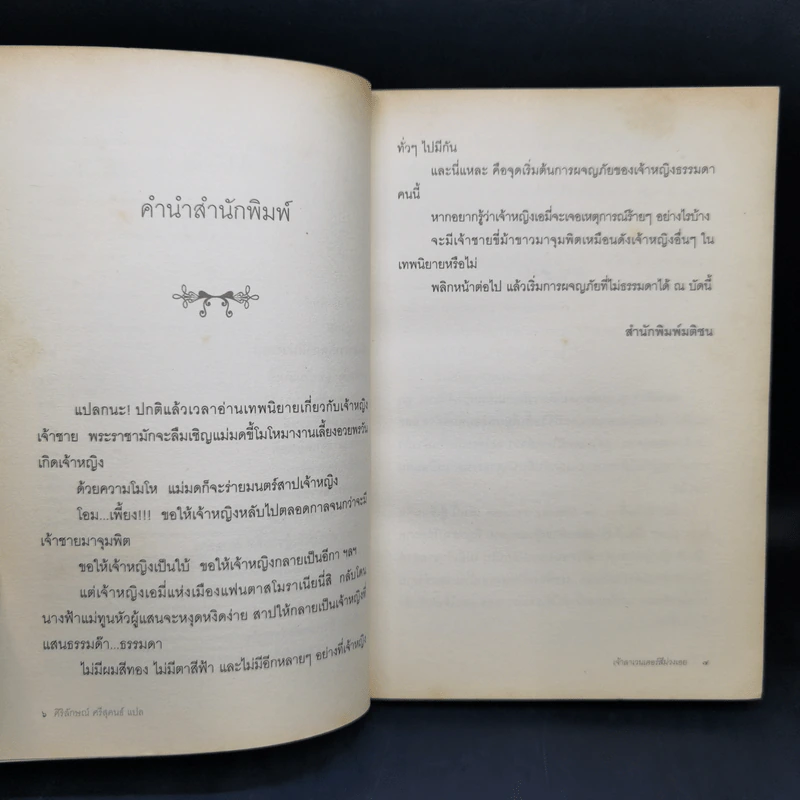 คำนำสำนักพิมพ์
แปลกนะ! ปกติแล้วเวลาอ่านเทพนิยายเกี่ยวกับเจ้าหญิง
เจ้าชาย พระราชามักจะลืมเชิญแม่มดขี้โมโหมางานเลี้ยงอวยพรวัน
เกิดเจ้าหญิง
ด้วยความโมโห แม่มดก็จะร่ายมนตร์สาปเจ้าหญิง
โอม...เพี้ยง!!! ขอให้เจ้าหญิงหลับไปตลอดกาลจนกว่าจะมี
เจ้าชายมาจุมพิต
ขอให้เจ้าหญิงเป็นใบ้ ขอให้เจ้าหญิงกลายเป็นอีกา ฯลฯ
แต่เจ้าหญิงเอมี่แห่งเมืองแฟนตาสโมราเนียนี่สิ กลับโดน
นางฟ้าแม่ทูนหัวผู้แสนจะหงุดหงิดง่าย สาปให้กลายเป็นเจ้าหญิงที่
แสนธรรมด๊า...ธรรมดา
ไม่มีผมสีทอง ไม่มีตาสีฟ้า และไม่มีอีกหลายๆ อย่างที่เจ้าหญิง
๖ ศิริลักษณ์ ศรีสุคนธ์ แปล
ทั่วๆ ไปมีกัน
และนี่แหละ คือจุดเริ่มต้นการผจญภัยของเจ้าหญิงธรรมดา
คนนี้
หากอยากรู้ว่าเจ้าหญิงเอมี่จะเจอเหตุการณ์ร้ายๆ อย่างไรบ้าง
จะมีเจ้าชายขี่ม้าขาวมาจุมพิตเหมือนดังเจ้าหญิงอื่นๆ ใน
เทพนิยายหรือไม่
พลิกหน้าต่อไป แล้วเริ่มการผจญภัยที่ไม่ธรรมดาได้ ณ บัดนี้
สำนักพิมพ์มติชน